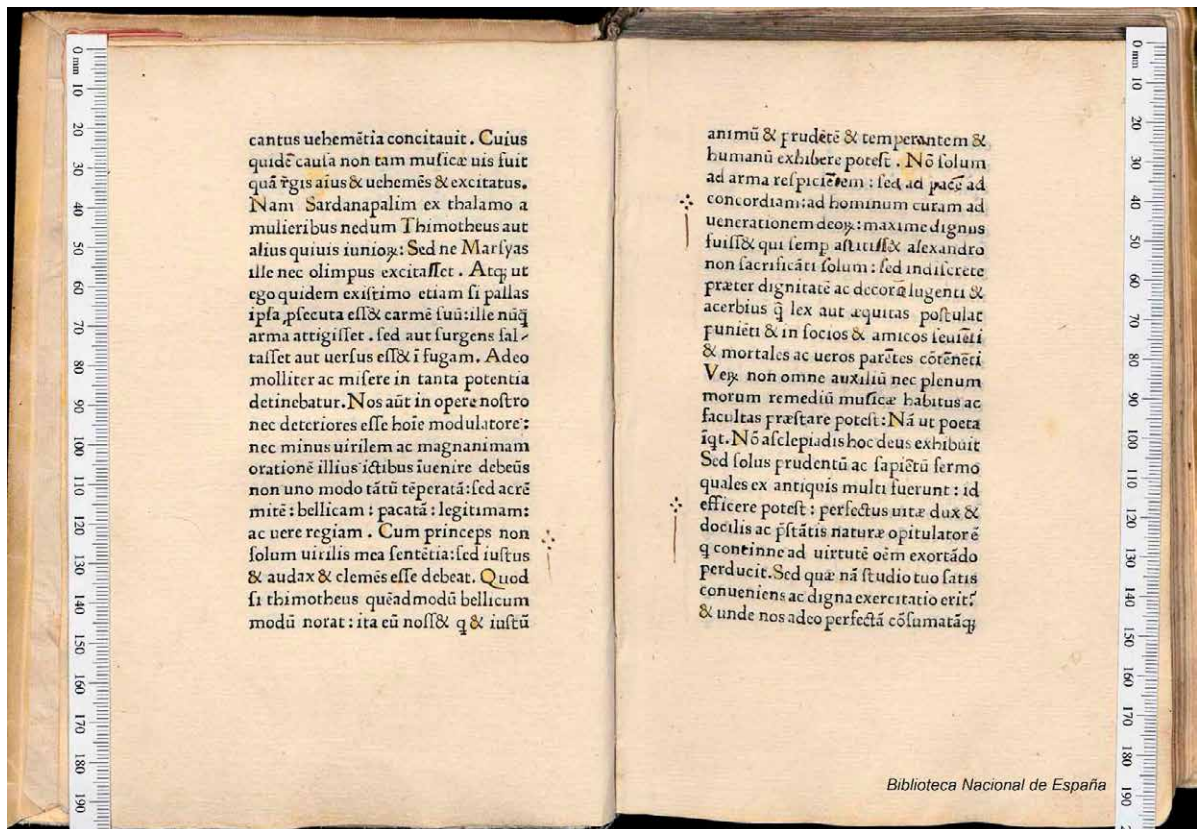 cantus uehemētia concitauit. Cuius
quidē causa non tam musicæ uis fuit
quā r̄gis aīus & uehemēs & excitatus.
Nam Sardanapalim ex thalamo a
mulieribus nedum Thimotheus aut
alius quiuis iunioꝝ: Sed ne Marsyas
ille nec olimpus excitasset. Atqꝫ ut
ego quidem existimo etiam si pallas
ipsa ꝓsecuta ess& carmē suū: ille nūq̄
arma attigisset. sed aut surgens sal-
tasset aut uersus ess& ī fugam. Adeo
molliter ac misere in tanta potentia
detinebatur. Nos aūt in opere nostro
nec deteriores esse hoīe modulatore:
nec minus uirilem ac magnanimam
orationē illius ictibus iuenire debeūs
non uno modo tātū tēperatā: sed acrē
mitē: bellicam: pacatā: legitimam:
ac uere regiam. Cum princeps non
solum uirilis mea sentētia: sed iustus
& audax & clemēs esse debeat. Quod
si thimotheus quēadmodū bellicum
modū norat: ita eū noss& q & iustū
animū & prudētē & temperantem &
humanū exhibere potest. Nō solum
ad arma respiciētem: sed ad pacē ad
concordiam: ad hominum curam ad
uenerationem deoꝝ: maxime dignus
fuiss& qui semp astitiss& alexandro
non sacrificāti solum: sed indiscrete
præter dignitatē ac decorē lugenti &
acerbius q̄ lex aut æquitas postulat
puniēti & in socios & amicos seuiēti
& mortales ac ueros parētes cōtēnēti
Veꝝ non omne auxiliū nec plenum
morum remediū musicæ habitus ac
facultas præstare potest: Nā ut poeta
īqt. Nō asclepiadis hoc deus exhibuit
Sed solus prudentū ac sapiētū sermo
quales ex antiquis multi fuerunt: id
efficere potest: perfectus uitæ dux &
docilis ac p̄stātis naturæ opitulatorē
q continne ad uirtutē oēm exortādo
perducit. Sed quæ nā studio tuo satis
conueniens ac digna exercitatio erit?
& unde nos adeo perfectā cōsumatāqꝫ
0 mm 10 20 30 40 50 60 70 80 90 100 110 120 130 140 150 160 170 180 190
0 mm 10 20 30 40 50 60 70 80 90 100 110 120 130 140 150 160 170 180 190
Biblioteca Nacional de España